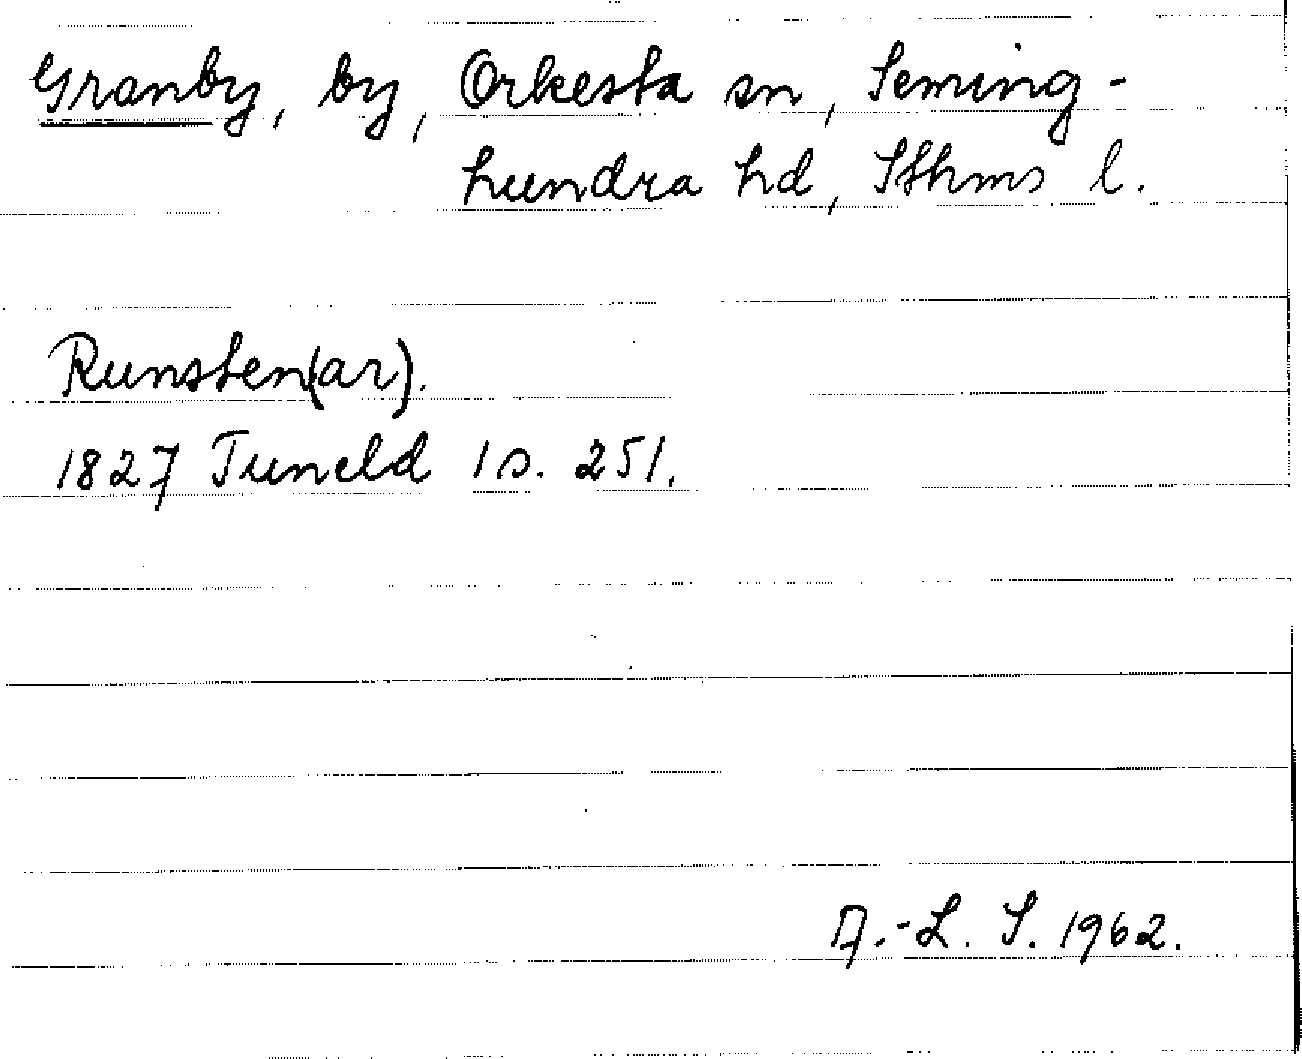 Granby, by, Orkesta sn, Seming-
hundra hd, Sthms l.
Runsten(ar).
1827 Tuneld 1 s. 251.
A.-L. S. 1962.